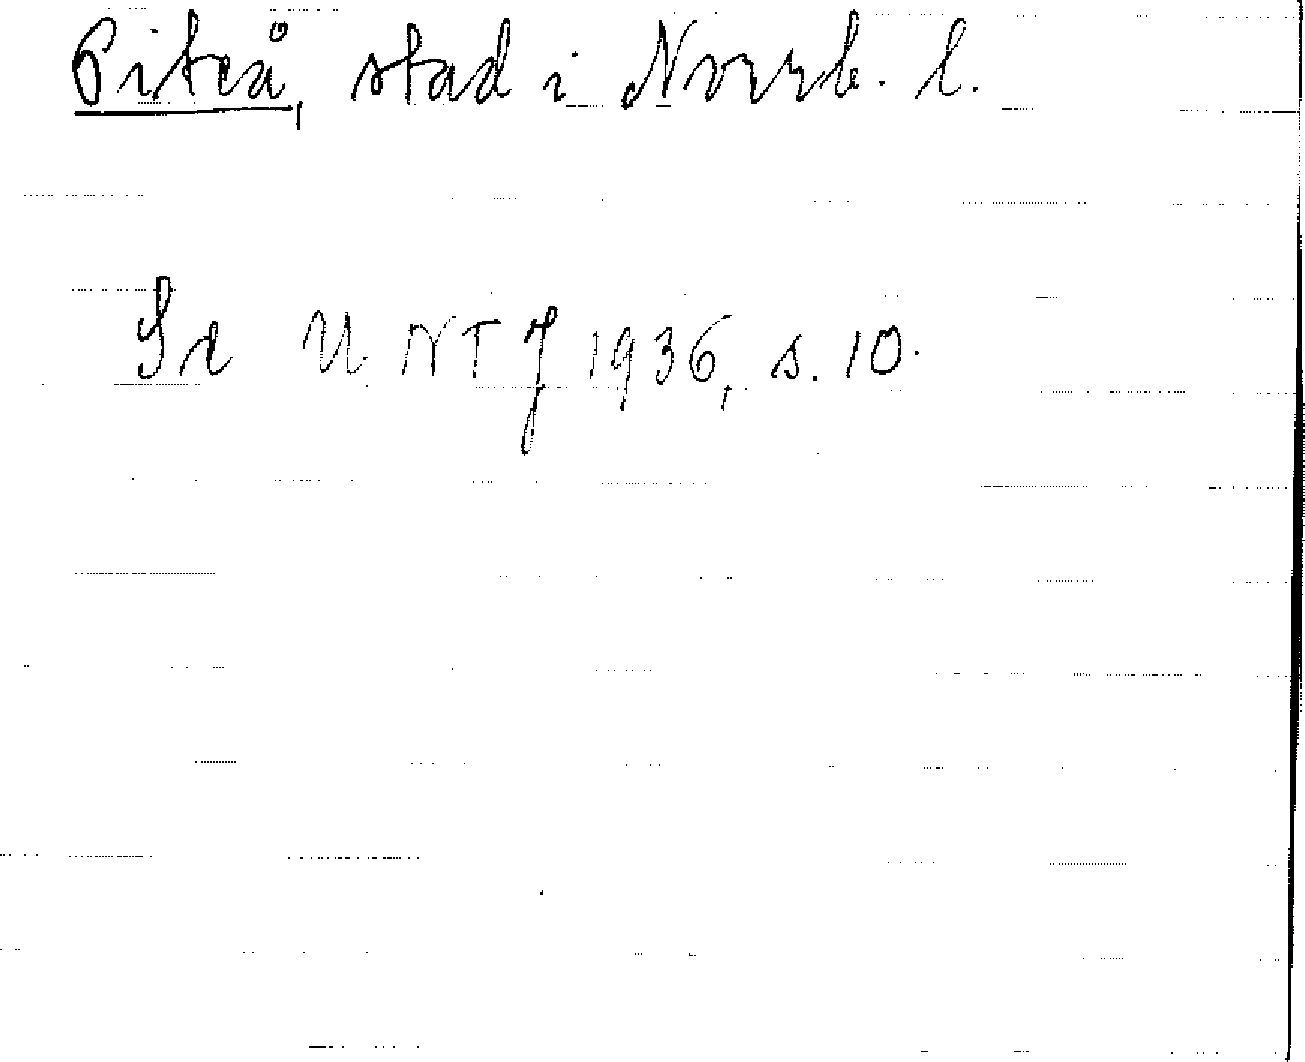 Piteå, stad i Norrb. l.
Se UNTJ 1936, s. 10.